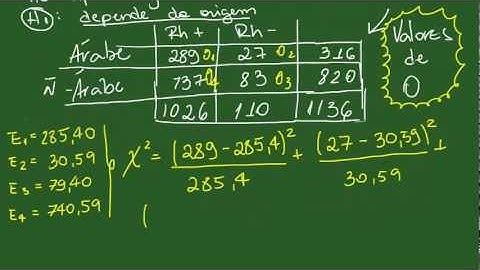 H₁: depende da origem
Rh + Rh -
Árabe 289 O₁ 27 O₂ 316
Ñ -Árabe 737 O₄ 83 O₃ 820
1026 110 1136
Valores
de
O
E₁ = 285,40
E₂ = 30,59
E₃ = 79,40
E₄ = 740,59
χ² = (289-285,4)² / 285,4 + (27-30,59)² / 30,59 +
(